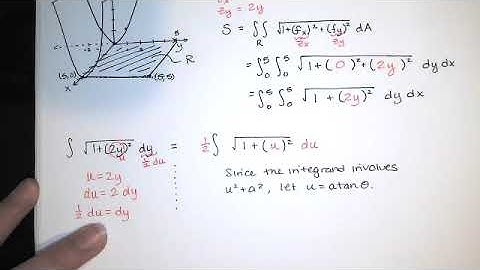 ∂z/∂y = 2y
S = ∬_R √(1+(f_x)²+(f_y)²) dA
∂z/∂x ∂z/∂y
= ∫₀⁵ ∫₀⁵ √(1+(0)²+(2y)²) dy dx
= ∫₀⁵ ∫₀⁵ √(1+(2y)²) dy dx
5
y
R
(5,0)
(5,5)
x
∫ √(1+(2y)²) dy = ½ ∫ √(1+(u)²) du
u ½ du
u = 2y
du = 2 dy
½ du = dy
Since the integrand involves
u²+a², let u = a tan θ.